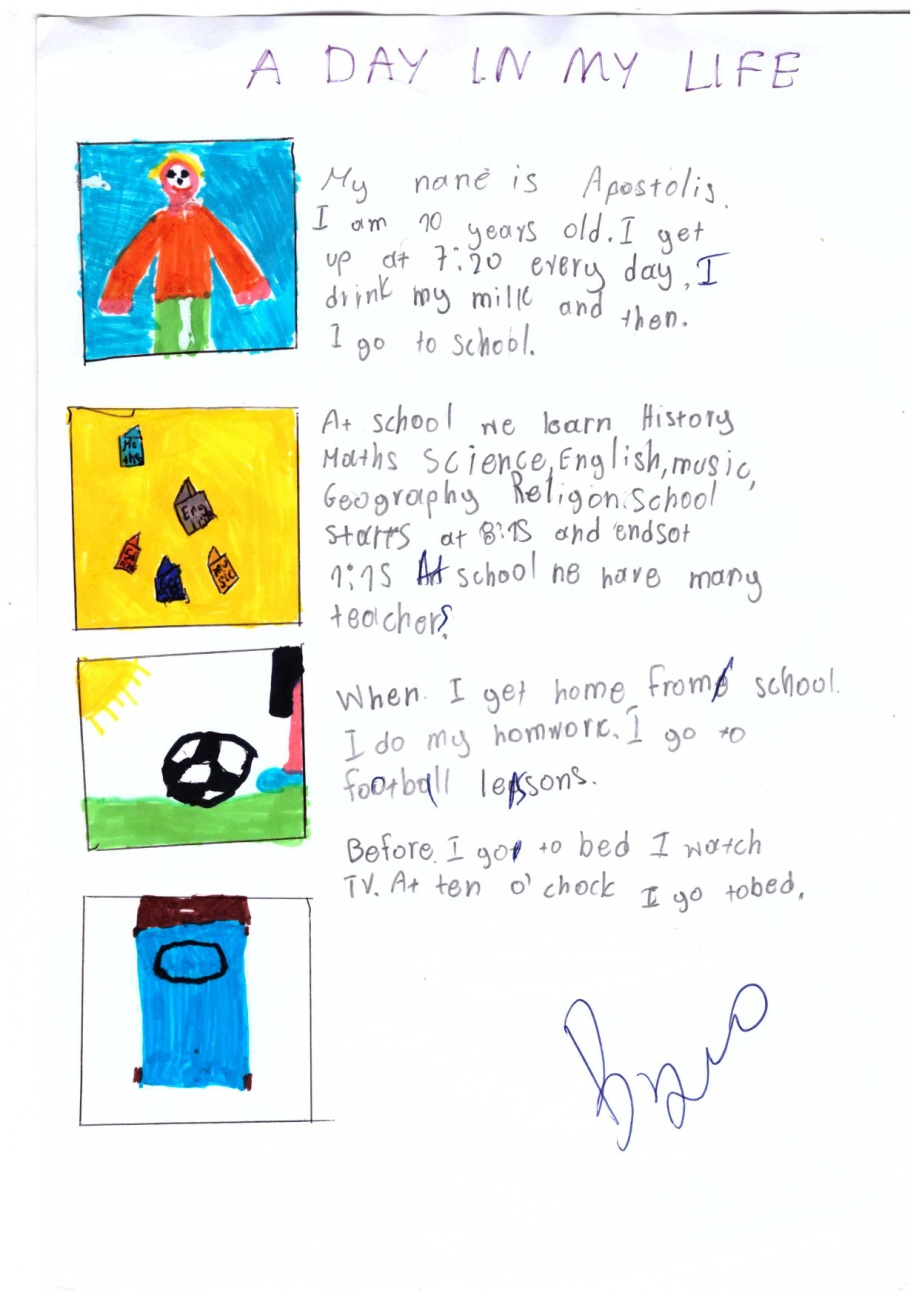 A DAY IN MY LIFE
My name is Apostolis.
I am 10 years old. I get
up at 7:20 every day, I
drink my milk and then.
I go to school.
Ma
ths
Eng
Mu
sic
At school we learn History
Maths Science, English, music,
Geography Religon. School
starts at 8:15 and endsat
1:15 At school we have many
teachers.
When. I get home from school.
I do my homwork. I go to
football lessons.
Before. I go to bed I watch
TV. At ten o'chock I go tobed.
Bravo